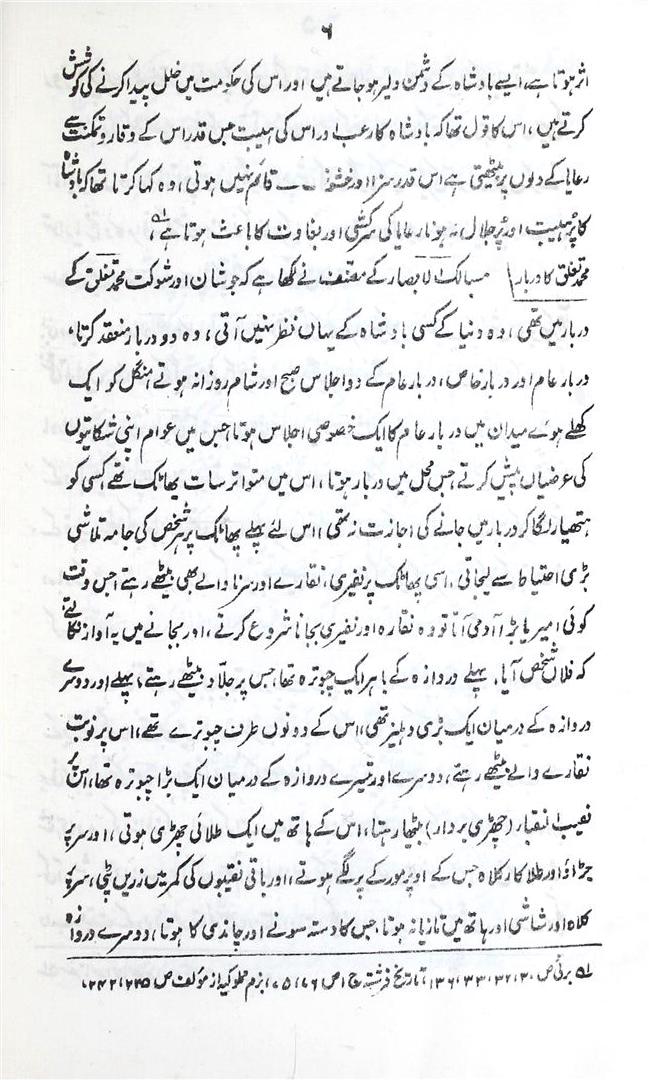 ۶
اثر ہوتا ہے، ایسے بادشاہ کے دشمن دلیر ہو جاتے ہیں اور اس کی حکومت میں خلل پیدا کرنے کی کوشش
کرتے ہیں، اس کا قول تھا کہ بادشاہ کا رعب اور اس کی ہیبت جس قدر اس کے وقار و تمکنت سے
رعایا کے دلوں پر بیٹھتی ہے اس قدر سزا اور خشونت سے قائم نہیں ہوتی، وہ کہا کرتا تھا کہ بادشاہ
کا پر ہیبت اور پر جلال نہ ہونا رعایا کی سرکشی اور بغاوت کا باعث ہوتا ہے لہ،
محمد تغلق کا دربار مسالک الابصار کے مصنف نے لکھا ہے کہ جو شان اور شوکت محمد تغلق کے
دربار میں تھی، وہ دنیا کے کسی بادشاہ کے یہاں نظر نہیں آتی، وہ دو دربار منعقد کرتا،
دربار عام اور دربار خاص، دربار عام کے دو اجلاس صبح اور شام روزانہ ہوتے، منگل کو ایک
کھلے ہوئے میدان میں دربار عام کا ایک خصوصی اجلاس ہوتا جس میں عوام اپنی شکایتوں
کی عرضیاں پیش کرتے جس محل میں دربار ہوتا، اس میں متواتر سات پھاٹک تھے کسی کو
ہتھیار لگا کر دربار میں جانے کی اجازت نہ تھی، اس لئے پہلے پھاٹک پر ہر شخص کی جامہ تلاشی
بڑی احتیاط سے لیجاتی، اسی پھاٹک پر نفیری، نقارے اور سرنا والے بھی بیٹھے رہتے، جس وقت
کوئی امیر یا بڑا آدمی آتا تو وہ نقارہ اور نفیری بجانا شروع کرتے، اور بجانے میں یہ آواز نکالتے
کہ فلاں شخص آیا، پہلے دروازہ کے باہر ایک چبوترہ تھا، جس پر جلاد بیٹھے رہتے، پہلے اور دوسرے
دروازہ کے درمیان ایک بڑی دہلیز تھی، اس کے دونوں طرف چبوترے تھے، اس پر نوبت
نقارے والے بیٹھے رہتے، دوسرے اور تیسرے دروازہ کے درمیان ایک بڑا چبوترہ تھا، اس پر
نقیب النقباء (چھڑی بردار) بیٹھا رہتا، اس کے ہاتھ میں ایک طلائی چھڑی ہوتی، اور سر پر
جڑاؤ اور طلا کار کلاہ جس کے اوپر مور کے پر لگے ہوتے، اور باقی نقیبوں کی کمر میں زریں پٹی، سر پر
کلاہ اور شاشی اور ہاتھ میں تازیانہ ہوتا، جس کا دستہ سونے اور چاندی کا ہوتا، دوسرے دروازہ
لہ برنی ص ۳۰، ۳۲، ۳۳، ۱۳۶، تاریخ فرشتہ ج ۱ ص ۷۶، ۷۵، بزم مملوکیہ از مؤلف ص ۲۴۵، ۲۴۲،